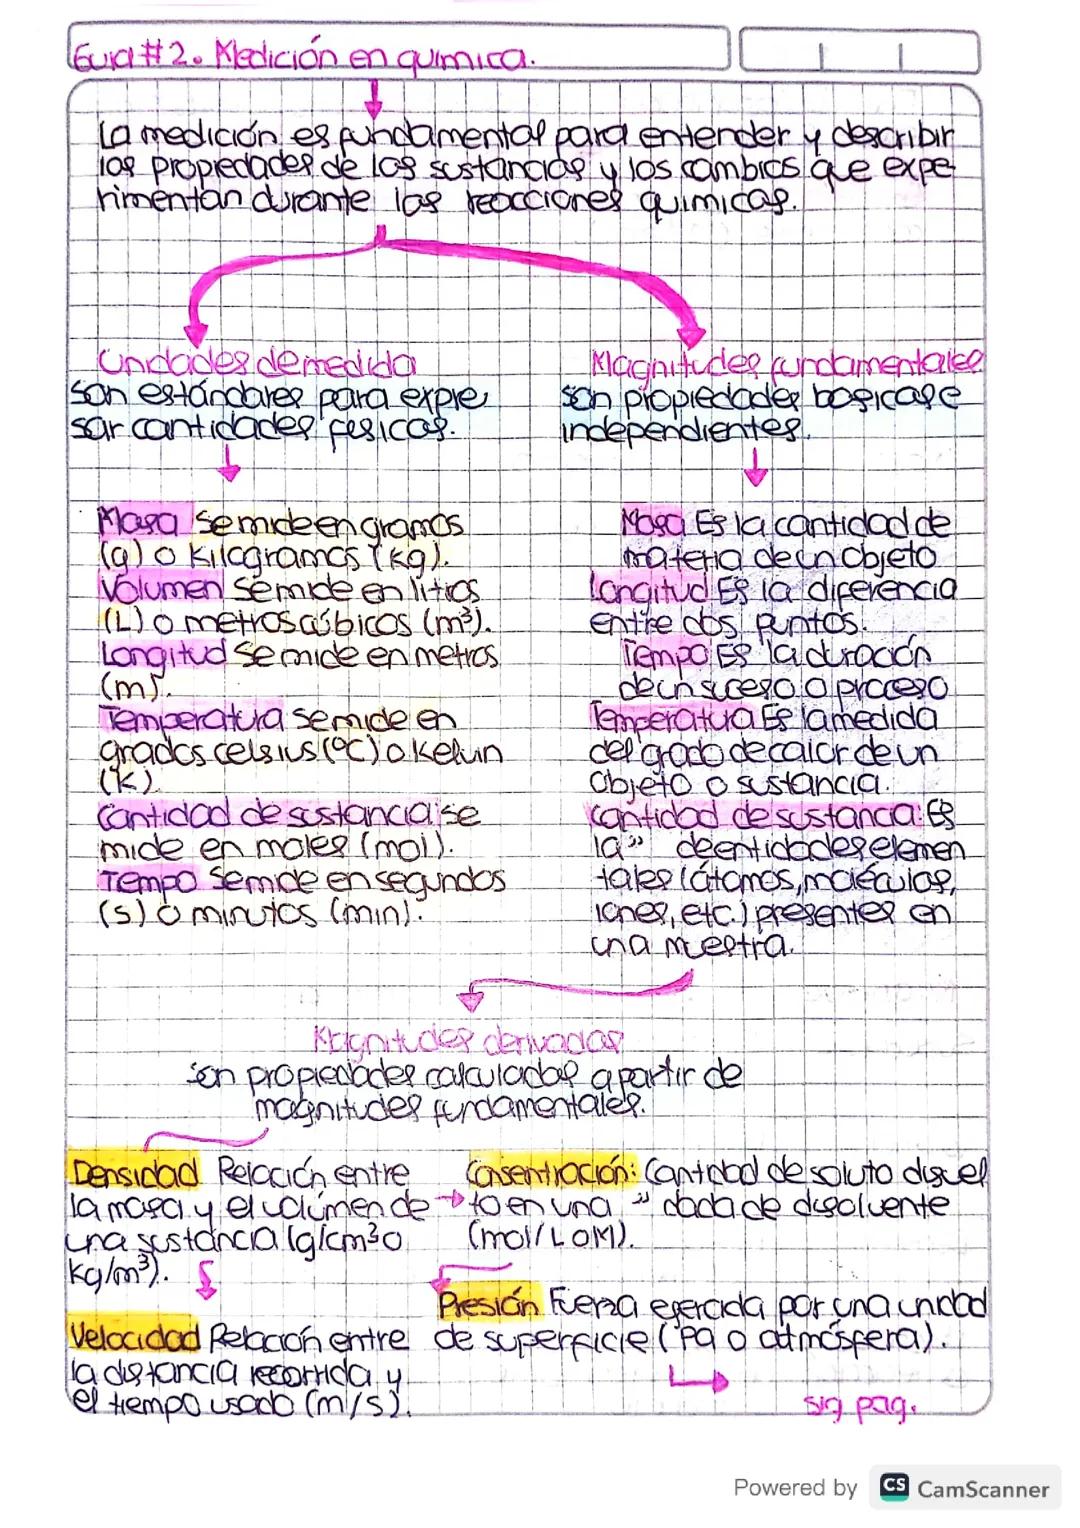 Guia #2. Medición en quimica.
La medición es fundamental para entender y describir
las propiedades de las sustancias y los cambios que expe
rimentan durante las reacciones quimicas.
Unidades de medida
son estándares para expre
sar cantidades fisicas.
Masa Se mide en gramos
(g) o Kilogramos (kg).
Volumen Se mide en litros
(L) o metros cúbicos (m³).
Longitud Se mide en metros
(m).
Temperatura se mide en
grados celsius (°C) o Kelvin
(K).
Cantidad de sustancia se
mide en moles (mol).
Tiempo Se mide en segundos
(s) o minutos (min).
Magnitudes fundamentales
son propiedades basicas e
independientes.
Masa Es la cantidad de
materia de un objeto
Longitud Es la diferencia
entre dos puntos.
Tiempo Es la duración
de un suceso o proceso
Temperatura Es la medida
del grado de calor de un
objeto o sustancia.
Cantidad de sustancia: Es
la " de entidades elemen
tales (átomos, moléculas,
iones, etc.) presentes en
una muestra.
Magnitudes derivadas
Son propiedades calculadas a partir de
magnitudes fundamentales.
Densidad Relación entre
la masa y el volúmen de
una sustancia (g/cm³ o
kg/m³).
Velocidad Relación entre
la distancia recorrida y
el tiempo usado (m/s).
Consentración: Cantidad de soluto disuel
to en una " dada de disolvente
(mol/L o M).
Presión Fuerza ejercida por una unidad
de superficie (Pa o atmósfera).
sig pag.
Powered by CS CamScanner